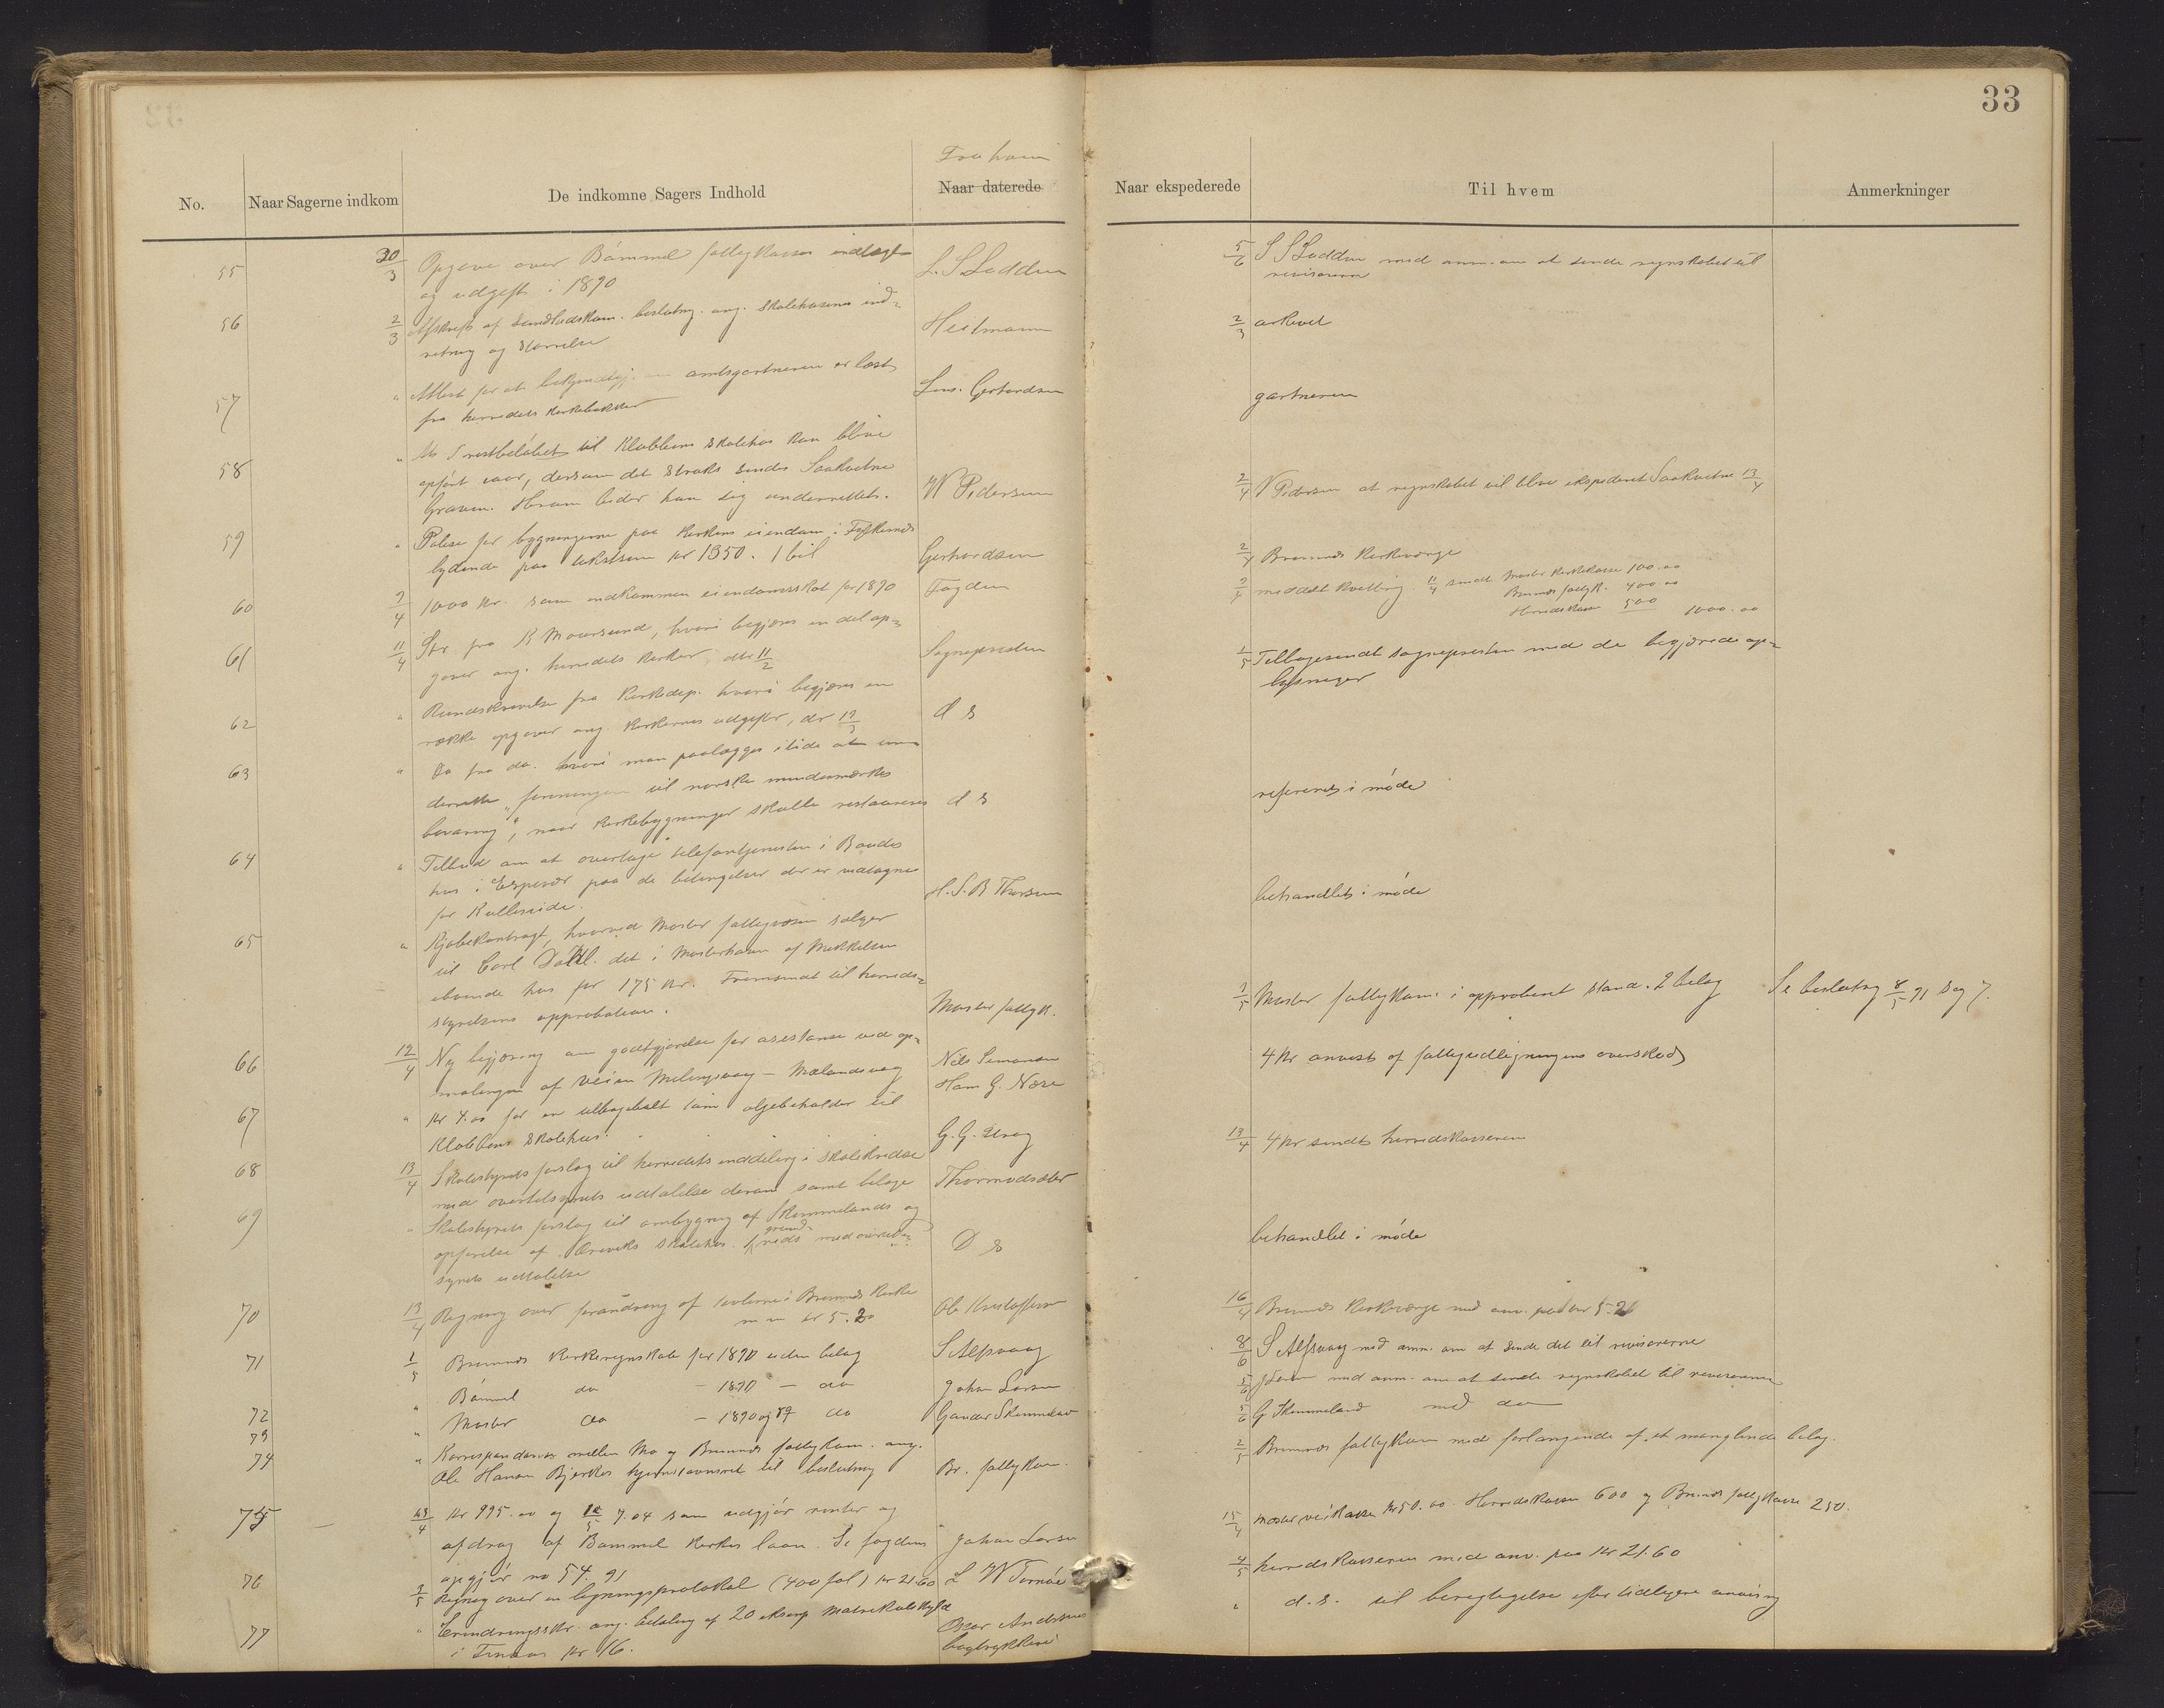 33
Fra hvem
No.
Naar Sagerne indkom
De indkomne Sagers Indhold
Naar daterede
Naar ekspederede
Til hvem
Anmerkninger
55 30/3 Opgave over Bømmel fattigkasses indtægt L. S Lodden
og udgift i 1890
5/6 S S Lodden med anm. om at sende regnskabet til
revisorerne
56 2/3 Afskrift af Sundhedskom. beslutng. ang. skolehusenes ind-
retnng og størrelse Heitmann
2/3 arkivet
57 " Attest for at bekjendtgj. amtsgartneren er læst
fra herredets kirkebakker Lens. Gerhardsen
gartneren
58 " At restbeløbet til Klubbens skolehus kan blive
opført iaar, dersom det straks sendes Saakvitne
Graven. Herom beder han sig underrettet. W Pedersen
2/4 N Pedersen at regnskabet vil blive ekspederet Saakvitne 13/4
59 " Polise for bygningerne paa kirkens eiendom i
lydende paa kr 1350. 1 bil Gerhardsen
2/4 Bremnes kirkeværge
60 7/4 1000 kr. som indkommen eiendomsskat for 1890 Fogden
7/4 meddelt kvittring. 11/4 sendt Moster kirkekasse 100.00
Bremnes fattigk. 400.00
Herredskassen 500
1000.00
61 11/4 Skr fra K Moursund, hvori begjæres en del op-
gaver ang. herredets kirker, dtr 11/2 Sognepresten
1/5 Tilbagesendt sognepresten med de begjærede op-
lysninger
62 " Rundskrivelse fra Kirkedep. hvori begjæres en
række opgaver ang. kirkernes udgifter, dr 12/3 d s
63 " Do fra do. hvori man paalægges itide at un-
derrette "foreningen til norske mindesmærkes
bevaring", naar kirkebygninger skulle restaureres d s
refereret i møde
64 " Tilbud om at overtage telefontjenesten i Baades
hus i Espevær paa de betingelser der er vedtagne
for Kulleseide. H. S. B Thorsen
behandlet i møde
65 " Kjøbekontrakt, hvorved Moster fattigvæsen sælger
til Carl Dahl. det i Mosterhavn af Mikkelsen
eboende hus for 175 kr. Fremsendt til herreds-
styrelsens approbation. Moster fattigk.
1/5 Moster fattigkom. i approberet stand. 2 belag
Se beslutng 8/5 91 sag 7.
66 12/4 Ny begjæring om godtgjørelse for assistanse ved op-
malingen af Veien Melingsvaag - Mælandsvag Nils Simonsen
Hans G. Nese
4 kr anvist af fattigudligningens overskud
67 " kr 4.00 for en tilbagekalt som oljebeholder til
Klubbens skolehus. G. G. Urag
13/4 4 kr sendt herredskassereren
68 13/4 Skolestyrets forslag til herredets inddeling i skolekredse
med overtilsynets udtalelse derom samt bilage Thormodsæter
69 " Skolestyrets forslag til ombygning af Skimmelands og
opførelse af skolehus. grund-
med overtil-
synets udtalelse D s
behandlet i møde
70 13/4 Regning over forandring af i Bremnes kirke
m m kr 5.20 Ole Kristoffersen
16/4 Bremnes kirkeværge med anv. paa kr 5.20
71 1/5 Bremnes kirkeregnskab for 1890 uden belag S Alfsvaag
8/6 S Alfsvaag med anm. om at sende det til revisorerne
" Bømmel do - 1890 - do Johan Larsen
5/6 J Larsen med anm. om at sende regnskabet til revisorerne
72 " Moster do - 1890 og 89 do Gundar Skimmeland
5/6 G Skimmeland med do
73
74 " Korrespondanse mellem Mo og Bremnes fattigkom. ang.
Ole Hansen Bjerkes hjemstavnsret til beslutnng Br. fattigkom.
2/5 Bremnes fattigkom med forlangende af et manglende belag.
75 13/4 kr 995.00 og 12/5 7.04 som udgjør renter og
afdrag af Bømmel kirkes laan. Se fogdens Johan Larsen
opgjør no 54. 91
15/4 Moster veikasse kr 50.00. Herredskassen 600 og Bremnes fattigkasse 250.
76 2/5 Regning over en ligningsprotokol (400 fol) kr 21.60 L W Tornøe
4/5 herredskassereren med anv. paa kr 21.60
77 " Erindringsskr. ang. betaling af 20 eksemp matrikulskyld
i Finnaas kr 16. Oscar Andersens
bogtrykkeri
" d.s. til beregtigelse efter tidligere anvisng